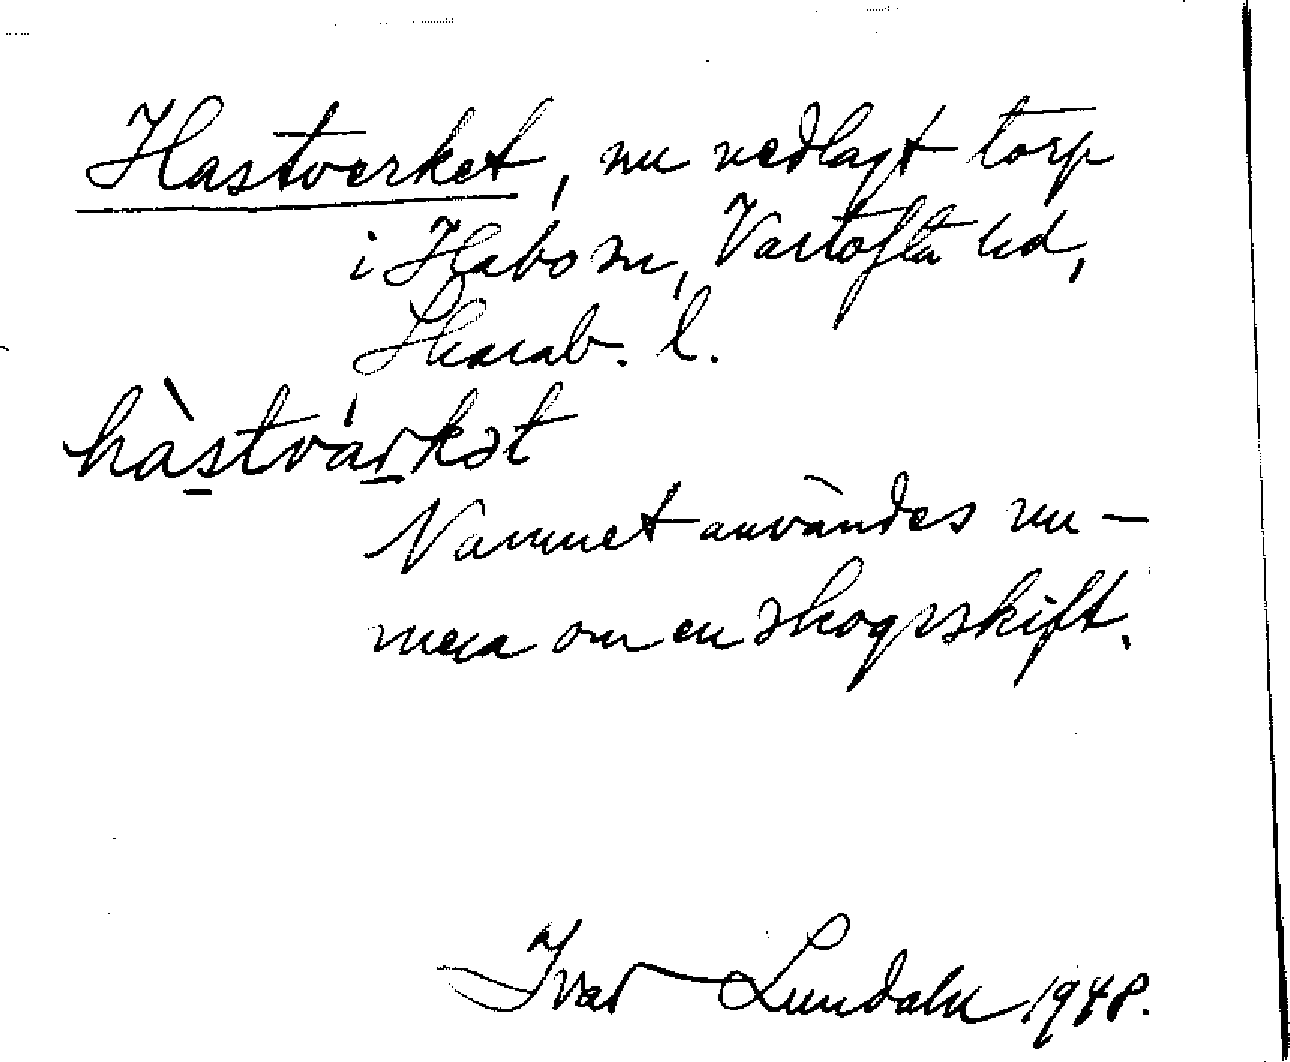 Hastverket, nu nedlagt torp
i Habo sn, Vartofta hd,
Skarab. l.
hàstvárkət
Namnet användes nu-
mera om en skogsskift.
Ivar Lundahl 1948.